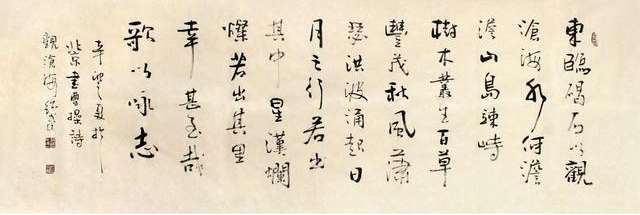 東臨碣石以觀
滄海水何澹
澹山島竦峙
樹木叢生百草
豐茂秋風蕭
瑟洪波涌起日
月之行若出
其中星漢爛
燦若出其里
幸甚至哉
歌以咏志
辛卯之夏於
書曹操詩
觀滄海